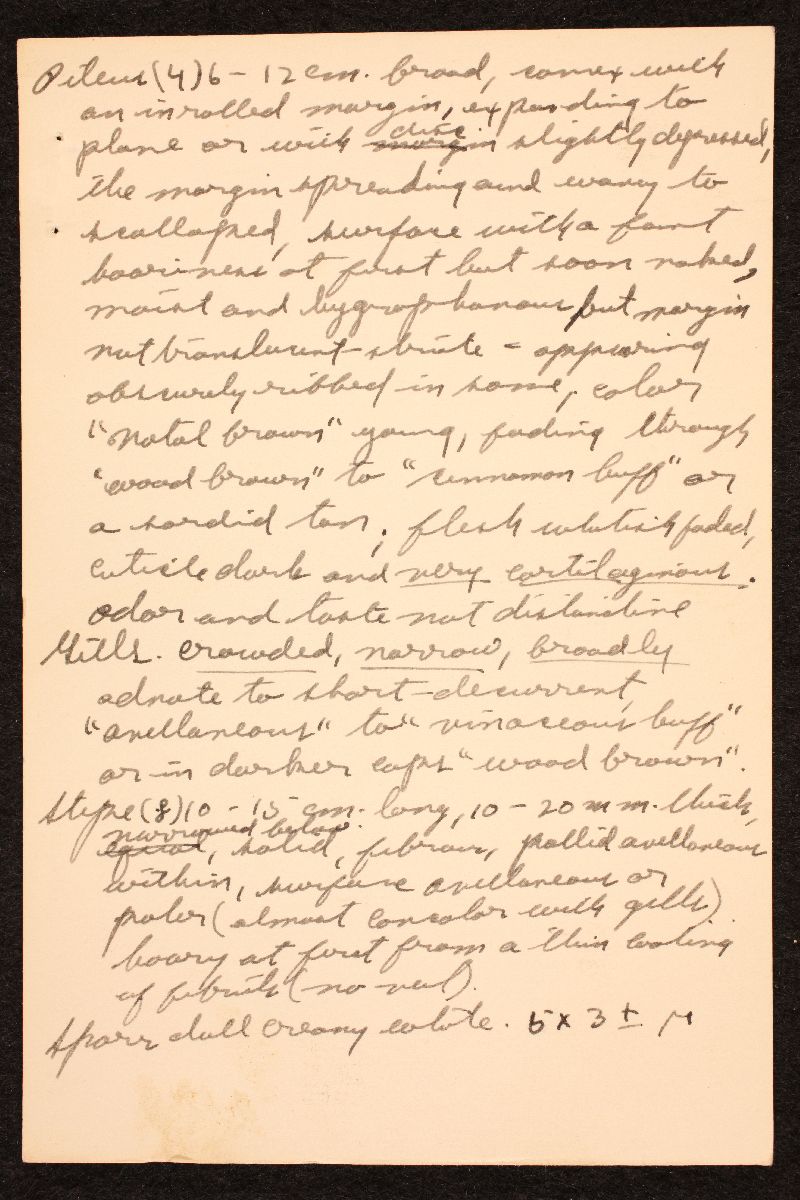 Pileus (4) 6 - 12 cm. broad, convex with
an inrolled margin, expanding to
plane or with margin disc slightly depressed,
the margin spreading and wavy to
scalloped, surface with a faint
hoariness at first but soon naked,
moist and hygrophanous but margin
not translucent-striate - appearing
obscurely ribbed in some, color
"natal brown" young, fading through
"wood brown" to "cinnamon buff" or
a sordid tan; flesh whitish faded,
cuticle dark and very cartilaginous.
odor and taste not distinctive
Gills. crowded, narrow, broadly
adnate to short-decurrent,
"avellaneous" to "vinaceous buff"
or in darker caps "wood brown".
Stipe (8) 10 - 15 cm. long, 10 - 20 mm. thick,
narrowed below.
equal, solid, fibrous, pallid avellaneous
within, surface avellaneous or
paler (almost concolor with gills)
hoary at first from a thin coating
of fibrils (no veil).
Spores dull creamy white. 5 x 3 ± μ